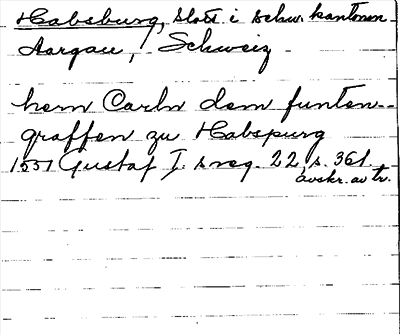 Habsburg, slott i schw. kantonen
Aargau, Schweiz
herrn Carln dem funten
graffen zu Habspurg
1551 Gustaf I s reg. 22, s. 361.
avskr. av tr.